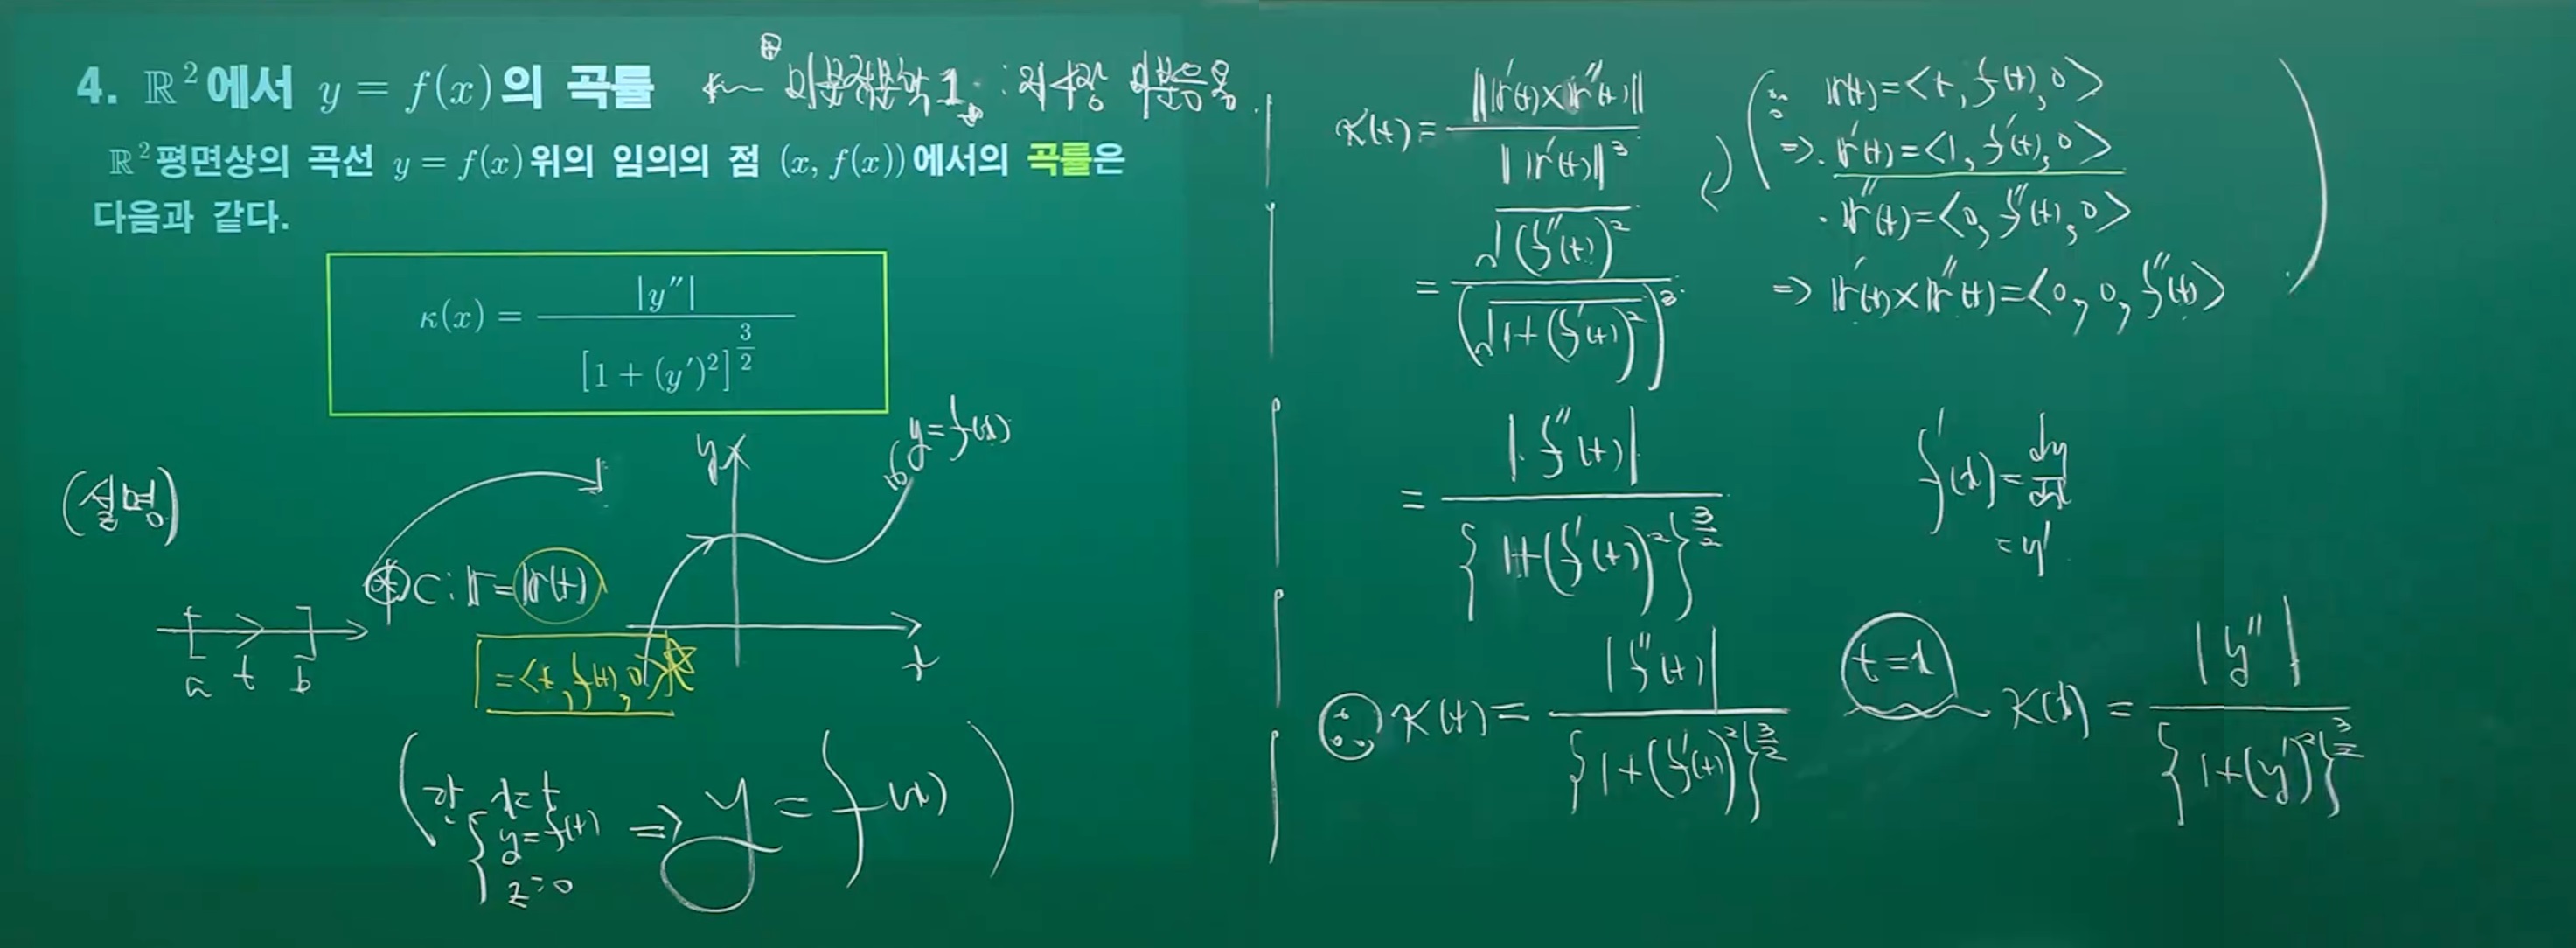 4. ℝ²에서 y = f(x)의 곡률 ← 미분적분학 1 : 미분응용
ℝ²평면상의 곡선 y = f(x)위의 임의의 점 (x, f(x))에서의 곡률은
다음과 같다.
κ(x) = |y″| / [1 + (y′)²]^(3/2)
(설명)
y
y=f(x)
C : r = r(t)
= <t, f(t), 0>
a t b
x
x=t
y=f(t) ⇒ y = f(x)
z=0
κ(t) = ‖r′(t)×r″(t)‖ / ‖r′(t)‖³
= √(f″(t))² / (√(1+(f′(t))²))³
= |f″(t)| / {1+(f′(t))²}^(3/2)
∴ κ(t) = |f″(t)| / {1+(f′(t))²}^(3/2)
r(t) = <t, f(t), 0>
⇒ r′(t) = <1, f′(t), 0>
r″(t) = <0, f″(t), 0>
⇒ r′(t)×r″(t) = <0, 0, f″(t)>
f′(x) = dy/dx
= y′
t=x
κ(x) = |y″| / {1+(y′)²}^(3/2)